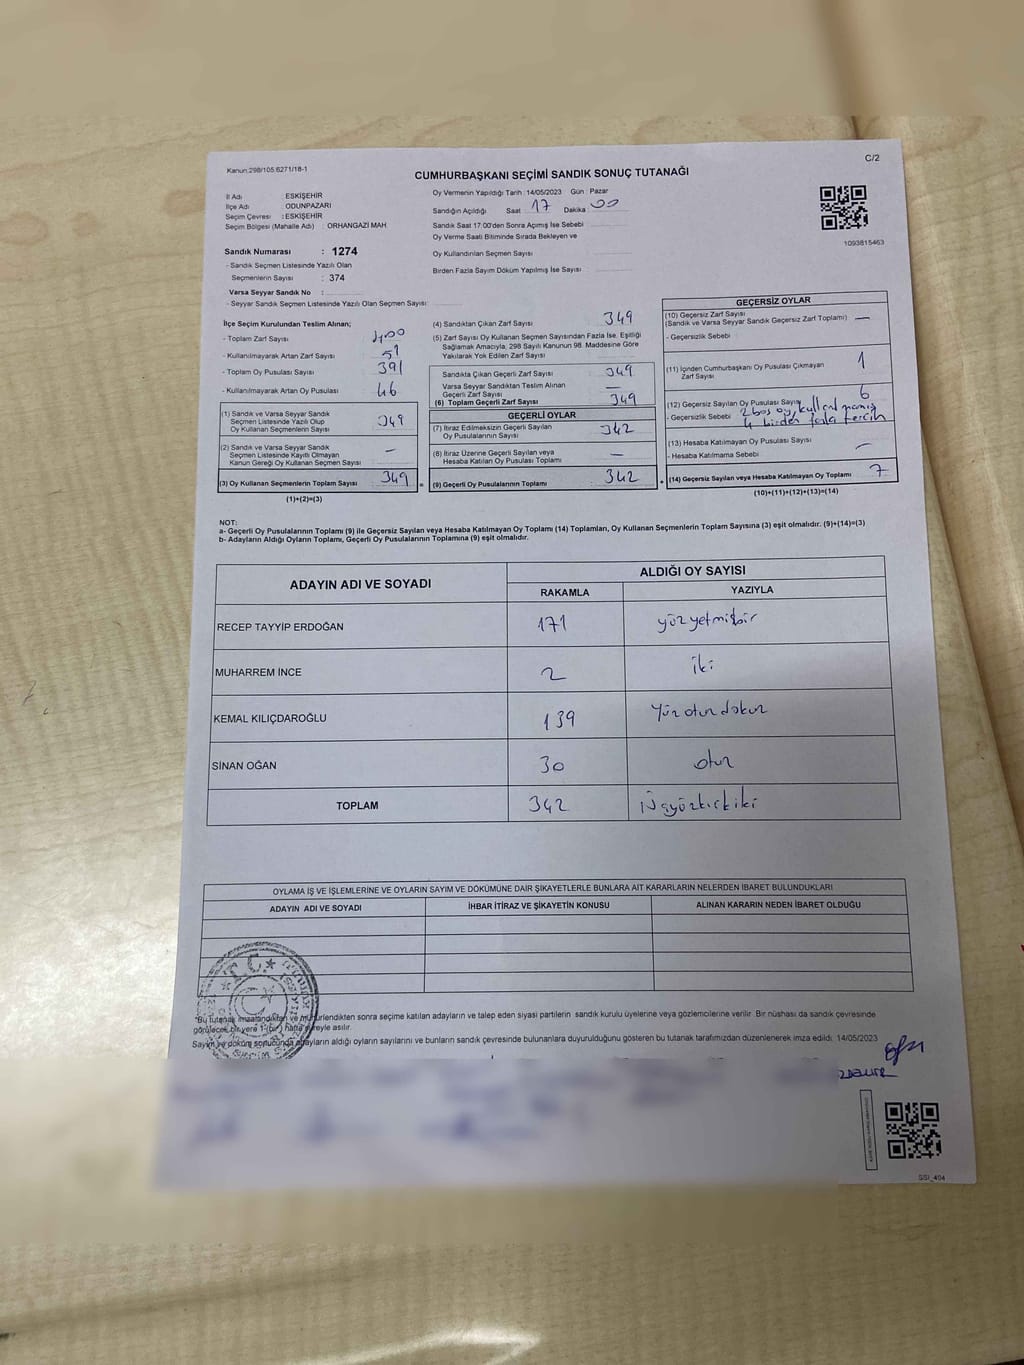 Kanun:298/105.6271/18-1
C/2
CUMHURBAŞKANI SEÇİMİ SANDIK SONUÇ TUTANAĞI
İl Adı : ESKİŞEHİR
İlçe Adı : ODUNPAZARI
Seçim Çevresi : ESKİŞEHİR
Seçim Bölgesi (Mahalle Adı) : ORHANGAZİ MAH
Sandık Numarası : 1274
- Sandık Seçmen Listesinde Yazılı Olan
Seçmenlerin Sayısı : 374
Varsa Seyyar Sandık No :
- Seyyar Sandık Seçmen Listesinde Yazılı Olan Seçmen Sayısı:
Oy Vermenin Yapıldığı Tarih : 14/05/2023 Gün : Pazar
Sandığın Açıldığı Saat 17 Dakika 00
Sandık Saat 17.00'den Sonra Açımış İse Sebebi
Oy Verme Saati Bitiminde Sırada Bekleyen ve
Oy Kullandırılan Seçmen Sayısı
Birden Fazla Sayım Döküm Yapılmış İse Sayısı
1093815463
İlçe Seçim Kurulundan Teslim Alınan;
- Toplam Zarf Sayısı 400
- Kullanılmayarak Artan Zarf Sayısı 51
- Toplam Oy Pusulası Sayısı 391
- Kullanılmayarak Artan Oy Pusulası 46
(1) Sandık ve Varsa Seyyar Sandık
Seçmen Listesinde Yazılı Olup
Oy Kullanan Seçmenlerin Sayısı 349
(2) Sandık ve Varsa Seyyar Sandık
Seçmen Listesinde Kayıtlı Olmayan
Kanun Gereği Oy Kullanan Seçmen Sayısı —
(3) Oy Kullanan Seçmenlerin Toplam Sayısı 349
(1)+(2)=(3)
(4) Sandıktan Çıkan Zarf Sayısı 349
(5) Zarf Sayısı Oy Kullanan Seçmen Sayısından Fazla İse, Eşitliği
Sağlamak Amacıyla, 298 Sayılı Kanunun 98. Maddesine Göre
Yakılarak Yok Edilen Zarf Sayısı
Sandıkta Çıkan Geçerli Zarf Sayısı 349
Varsa Seyyar Sandıktan Teslim Alınan
Geçerli Zarf Sayısı —
(6) Toplam Geçerli Zarf Sayısı 349
GEÇERLİ OYLAR
(7) İtiraz Edilmeksizin Geçerli Sayılan
Oy Pusulalarının Sayısı 342
(8) İtiraz Üzerine Geçerli Sayılan veya
Hesaba Katılan Oy Pusulası Toplamı —
(9) Geçerli Oy Pusulalarının Toplamı 342
GEÇERSİZ OYLAR
(10) Geçersiz Zarf Sayısı
(Sandık ve Varsa Seyyar Sandık Geçersiz Zarf Toplamı) —
- Geçersizlik Sebebi
(11) İçinden Cumhurbaşkanı Oy Pusulası Çıkmayan
Zarf Sayısı 1
(12) Geçersiz Sayılan Oy Pusulası Sayısı 6
- Geçersizlik Sebebi 2 boş oy, kullanılmamış
4 birden fazla tercih
(13) Hesaba Katılmayan Oy Pusulası Sayısı —
- Hesaba Katılmama Sebebi
(14) Geçersiz Sayılan veya Hesaba Katılmayan Oy Toplamı 7
(10)+(11)+(12)+(13)=(14)
NOT:
a- Geçerli Oy Pusulalarının Toplamı (9) ile Geçersiz Sayılan veya Hesaba Katılmayan Oy Toplamı (14) Toplamları, Oy Kullanan Seçmenlerin Toplam Sayısına (3) eşit olmalıdır. (9)+(14)=(3)
b- Adayların Aldığı Oyların Toplamı, Geçerli Oy Pusulalarının Toplamına (9) eşit olmalıdır.
ADAYIN ADI VE SOYADI
ALDIĞI OY SAYISI
RAKAMLA YAZIYLA
RECEP TAYYİP ERDOĞAN 171 yüzyetmişbir
MUHARREM İNCE 2 iki
KEMAL KILIÇDAROĞLU 139 Yüzotuzdokuz
SİNAN OĞAN 30 otuz
TOPLAM 342 Üçyüzkırkiki
OYLAMA İŞ VE İŞLEMLERİNE VE OYLARIN SAYIM VE DÖKÜMÜNE DAİR ŞİKAYETLERLE BUNLARA AİT KARARLARIN NELERDEN İBARET BULUNDUKLARI
ADAYIN ADI VE SOYADI İHBAR İTİRAZ VE ŞİKAYETİN KONUSU ALINAN KARARIN NEDEN İBARET OLDUĞU
T.C.
*Bu tutanak imzalandıktan ve mühürlendikten sonra seçime katılan adayların ve talep eden siyasi partilerin sandık kurulu üyelerine veya gözlemcilerine verilir. Bir nüshası da sandık çevresinde
görülecek bir yere 1 (bir) hafta süreyle asılır.
Sayım ve döküm sonucunda adayların aldığı oyların sayılarını ve bunların sandık çevresinde bulunanlara duyurulduğunu gösteren bu tutanak tarafımızdan düzenlenerek imza edildi. 14/05/2023
SSI_404